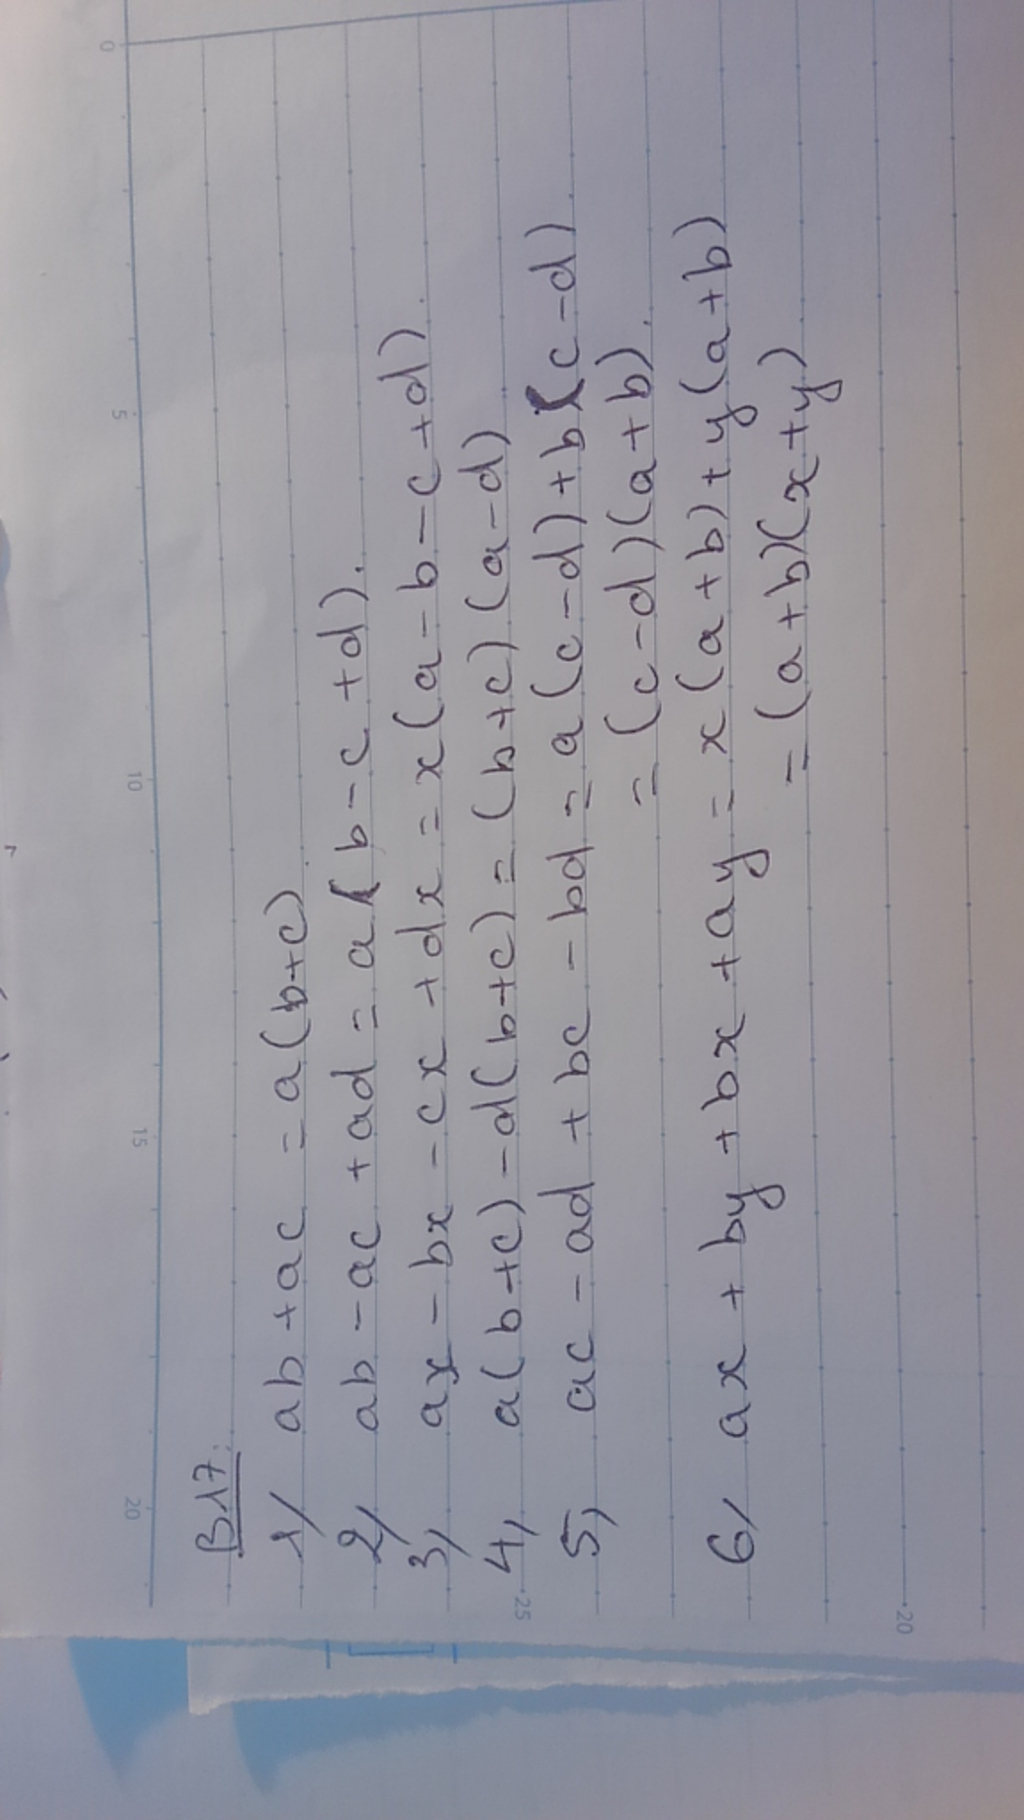 B17:
1/ ab + ac = a(b+c)
2/ ab - ac + ad = a(b - c + d).
3, ax - bx - cx + dx = x(a - b - c + d).
4, a(b+c) - d(b+c) = (b+c)(a-d)
5, ac - ad + bc - bd = a(c-d) + b(c-d)
= (c-d)(a+b).
6/ ax + by + bx + ay = x(a+b) + y(a+b)
= (a+b)(x+y)
0
5
10
15
20
25
20